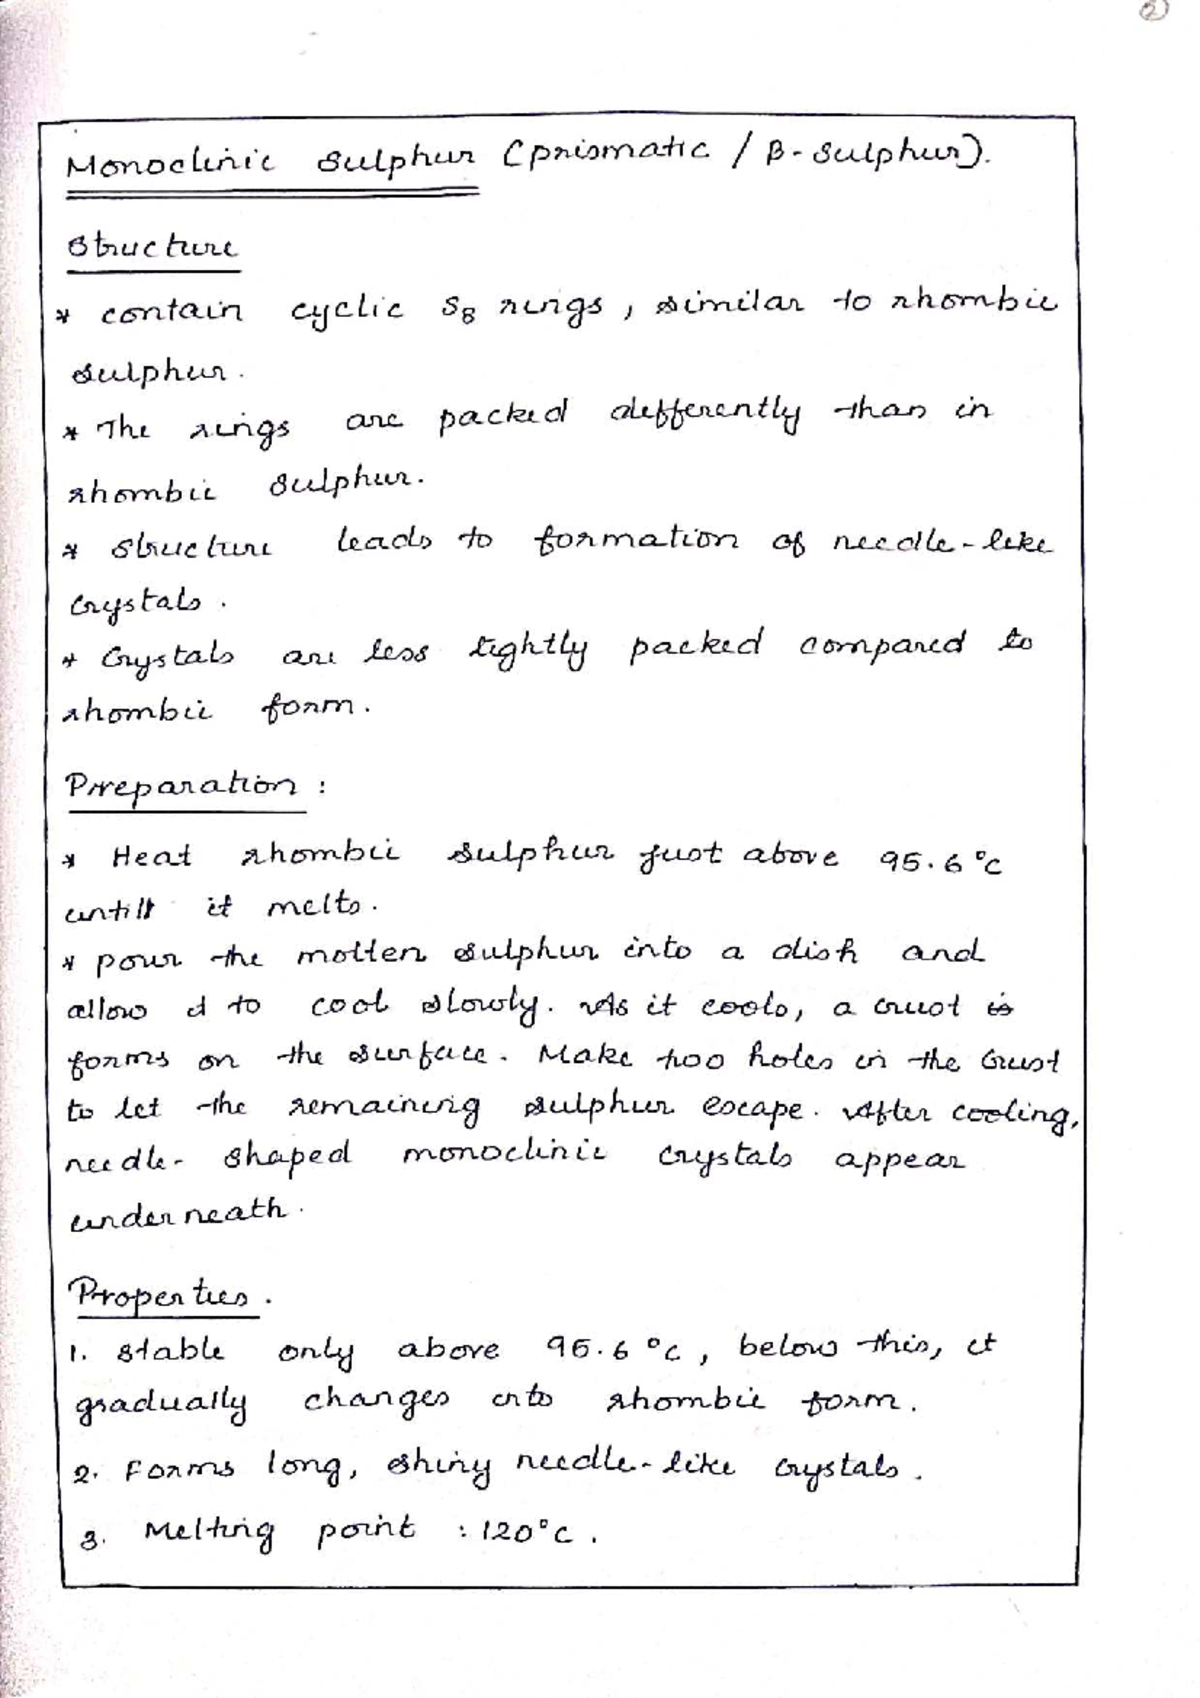 2
Monoclinic Sulphur (prismatic / β-Sulphur).
Structure
* contain cyclic S8 rings, similar to rhombic
sulphur.
* The rings are packed differently than in
rhombic sulphur.
* Structure leads to formation of needle-like
crystals.
* Crystals are less tightly packed compared to
rhombic form.
Preparation :
* Heat rhombic sulphur just above 95.6°C
untill it melts.
* pour the molten sulphur into a dish and
allow it to cool slowly. As it cools, a crust is
forms on the surface. Make two holes in the crust
to let the remaining sulphur escape. After cooling,
needle-shaped monoclinic crystals appear
underneath.
Properties.
1. Stable only above 95.6°C, below this, it
gradually changes into rhombic form.
2. Forms long, shiny needle-like crystals.
3. Melting point : 120°C.